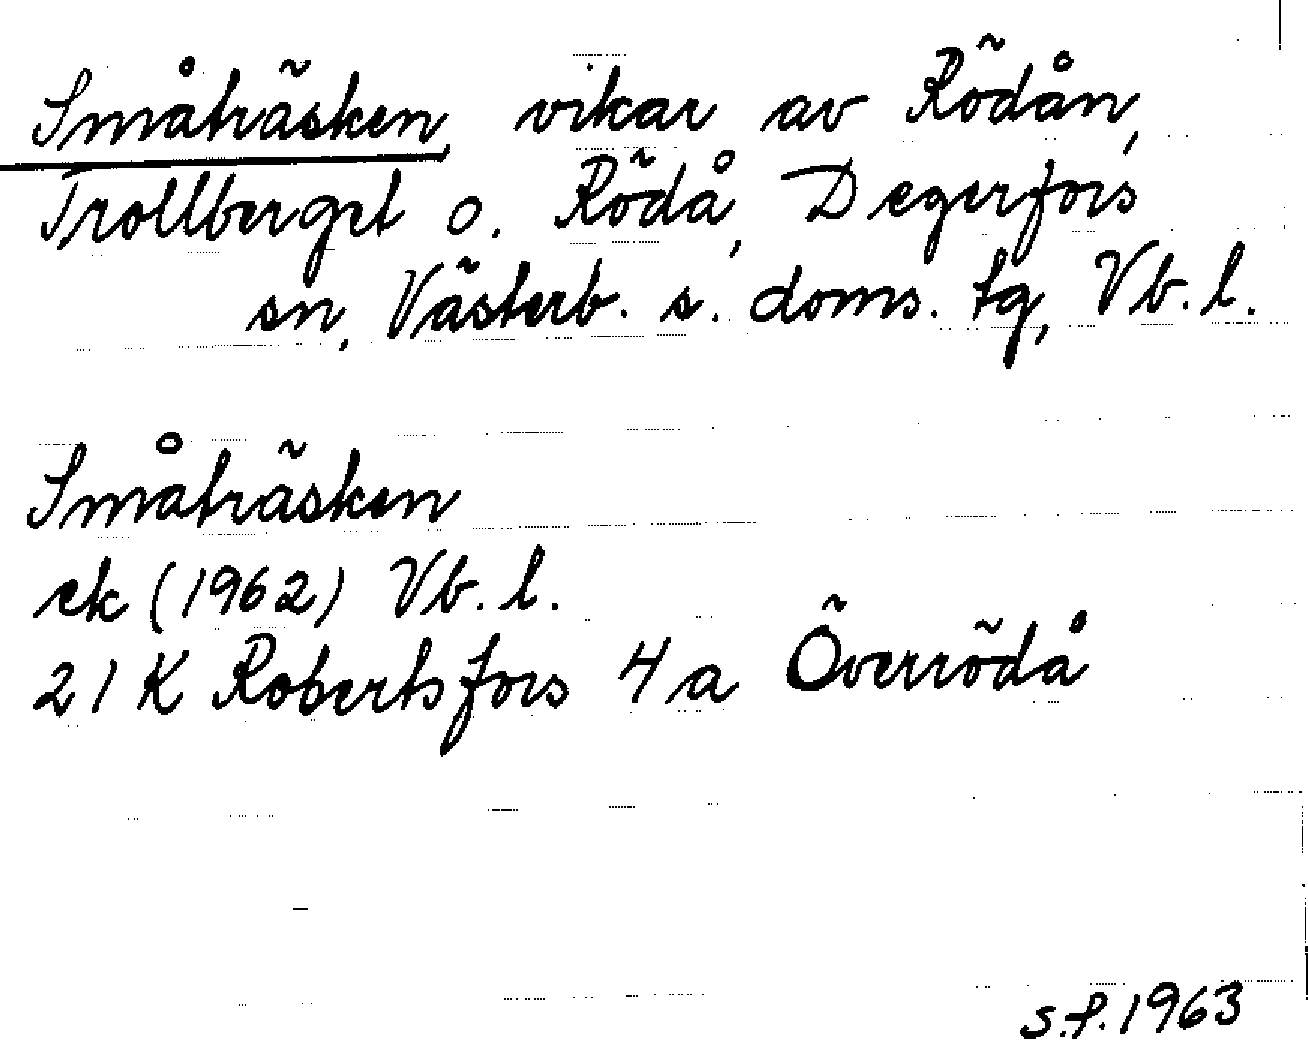 Småträsken, vikar av Rödån,
Trollberget o. Rödå, Degerfors
sn, Västerb. s. doms. tg, Vb. l.
Småträsken
ek (1962) Vb. l.
21 K Robertsfors 4 a Överrödå
S.f. 1963